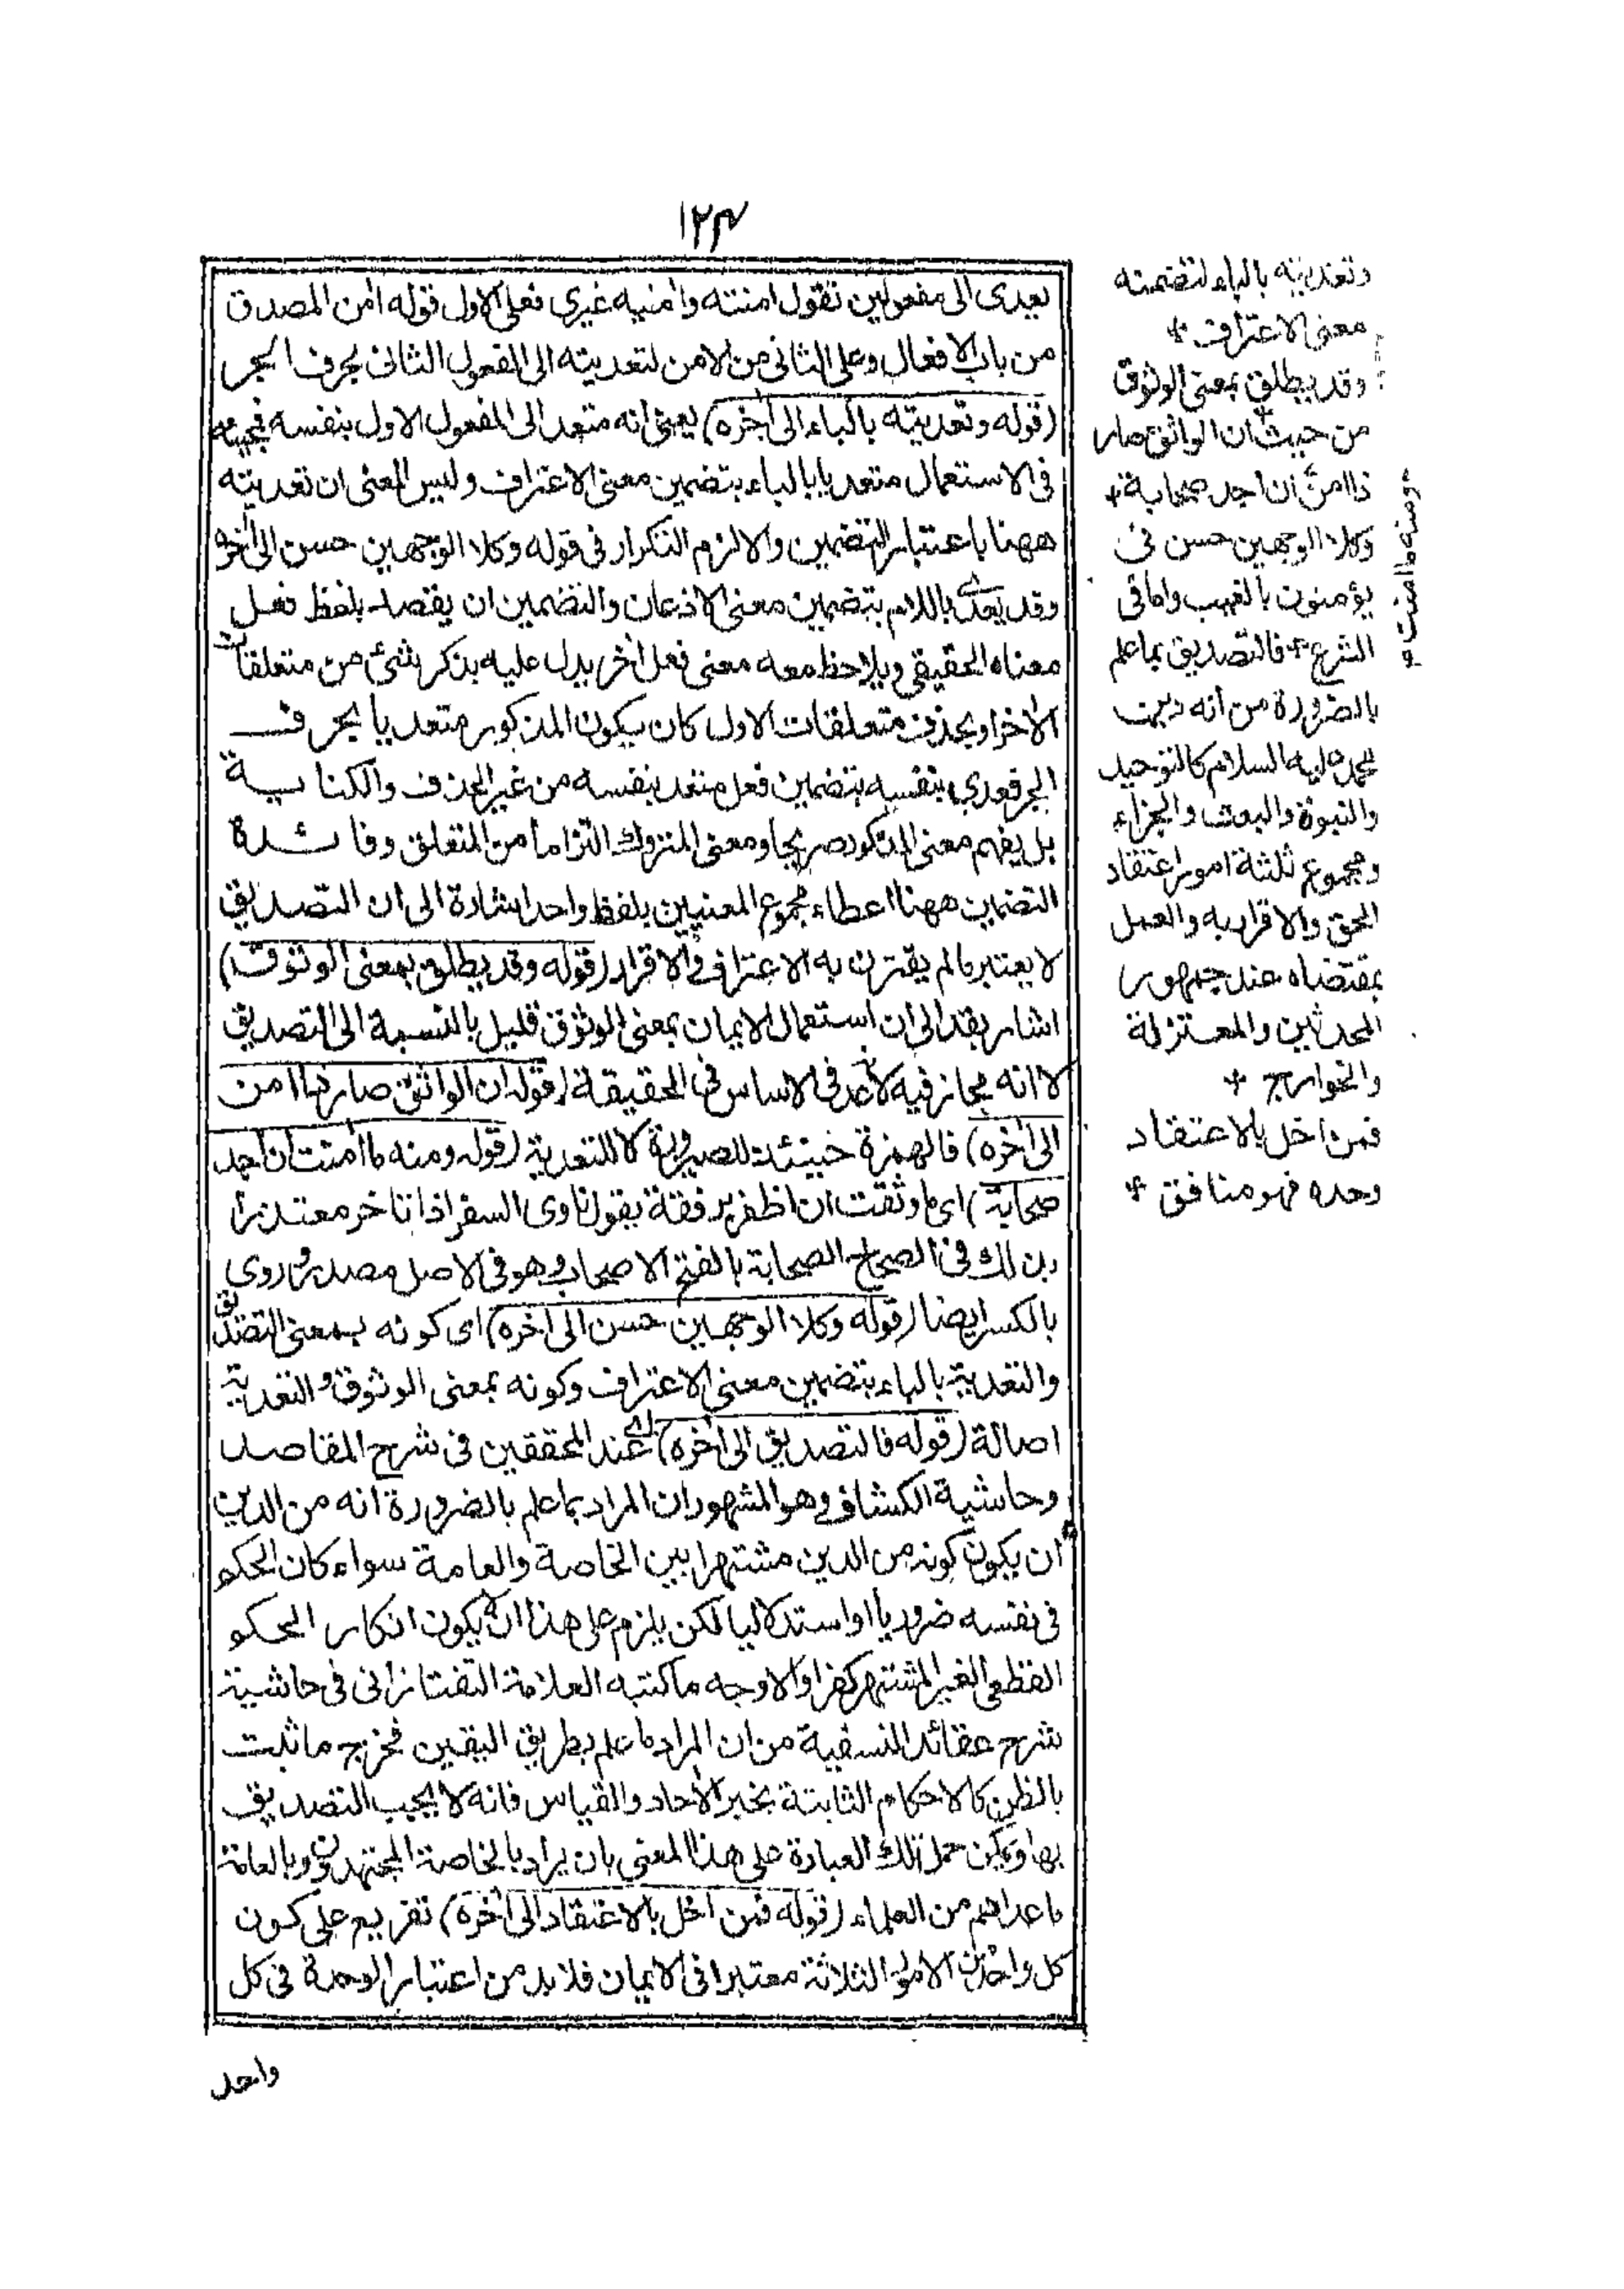 ١٢٤
يعدى الى مفعولين تقول امنته وامنيه غيرى فعلى الاول قوله امن المصدق
من باب الافعال وعلى الثانى من الامن لتعديته الى المفعول الثانى بحرف الجر
(قوله وتعديته بالباء الى اخره) يعنى انه متعد الى المفعول الاول بنفسه فمجيئه
فى الاستعمال متعديا بالباء بتضمين معنى الاعتراف وليس المعنى ان تعديته
ههنا باعتبار التضمين والا لزم التكرار فى قوله وكلا الوجهين حسن الى اخره
وقد يعدى باللام بتضمين معنى الاذعان والتضمين ان يقصد بلفظ فعل
معناه الحقيقى ويلاحظ معه معنى فعل اخر يدل عليه بذكر شئ من متعلقات
الاخر او بحذف متعلقات الاول كان يكون المذكور متعديا بحرف
الجر فعدى بنفسه بتضمين فعل متعد بنفسه من غير الحذف والكناية
بل يفهم معنى المذكور صريحا ومعنى المتروك التزاما من المتعلق وفائدة
التضمين ههنا اعطاء مجموع المعنيين بلفظ واحد اشارة الى ان التصديق
لا يعتبر مالم يقترن به الاعتراف والاقرار (قوله وقد يطلق بمعنى الوثوق)
اشار بقد الى ان استعمال الايمان بمعنى الوثوق قليل بالنسبة الى التصديق
لا انه مجاز فيه لانه عد فى الاساس فى الحقيقة (قوله ان الواثق صار ذا امن
الى اخره) فالهمزة حينئذ للصيرورة لا للتعدية (قوله ومنه ما امنت ان اجد
صحابة) اى ما وثقت ان اظفر برفقة يقول ناوى السفر اذا تاخر معتذرا
بذلك فى الصحاح الصحابة بالفتح الاصحاب وهو فى الاصل مصدر وروى
بالكسر ايضا (قوله وكلا الوجهين حسن الى اخره) اى كونه بمعنى التصديق
والتعدية بالباء بتضمين معنى الاعتراف وكونه بمعنى الوثوق والتعدية
اصالة (قوله فالتصديق الى اخره) اى عند المحققين فى شرح المقاصد
وحاشية الكشاف وهو المشهور ان المراد بما علم بالضرورة انه من الدين
ان يكون كونه من الدين مشتهرا بين الخاصة والعامة سواء كان الحكم
فى نفسه ضروريا او استدلاليا لكن يلزم على هذا ان لا يكون انكار الحكم
القطعى الغير المشتهر كفرا والاوجه ما كتبه العلامة التفتازانى فى حاشية
شرح عقائد النسفية من ان المراد ما علم بطريق اليقين فخرج ما ثبت
بالظن كالاحكام الثابتة بخبر الاحاد والقياس فانه لا يجب التصديق
بها ويمكن حمل تلك العبارة على هذا المعنى بان يراد بالخاصة المجتهدون وبالعامة
ما عداهم من العلماء (قوله فمن اخل بالاعتقاد الى اخره) تفريع على كون
كل واحد من الامور الثلاثة معتبرا فى الايمان فلا بد من اعتبار الوحدة فى كل
واحد
وتعديته بالباء لتضمنه
معنى الاعتراف
وقد يطلق بمعنى الوثوق
من حيث ان الواثق صار
ذا امن ان اجد صحابة
وكلا الوجهين حسن فى
يؤمنون بالغيب واما فى
الشرع فالتصديق بما علم
بالضرورة من انه دين
محمد عليه السلام كالتوحيد
والنبوة والبعث والجزاء
ومجموع ثلثة امور اعتقاد
الحق والاقرار به والعمل
بمقتضاه عند جمهور
المحدثين والمعتزلة
والخوارج
فمن اخل بالاعتقاد
وحده فهو منافق
ومنه ما امنت